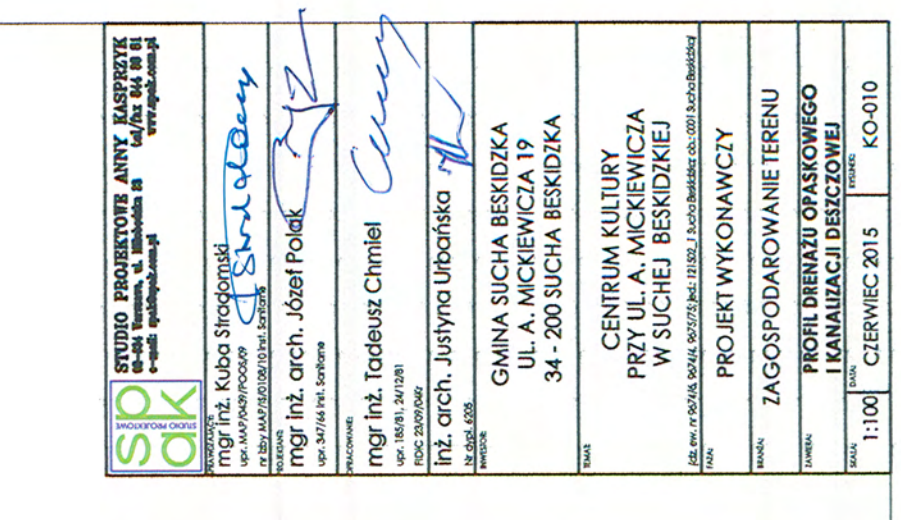 STUDIO PROJEKTOWE
spak
STUDIO PROJEKTOWE ANNY KASPRZYK
Warszawa, ul. 83 tel/fax 844 80 81
e-mail: spak@spak.com.pl www.spak.com.pl
SPRAWDZAJĄCY:
mgr inż. Kuba Stradomski
upr. MAP/0439/POOS/09
nr Izby MAP/IS/0108/10 Inst. Sanitarne
PROJEKTANT:
mgr inż. arch. Józef Polak
upr. 347/66 Inst. Sanitarne
OPRACOWANIE:
mgr inż. Tadeusz Chmiel
upr. 185/81, 24/12/81
FIDIC 23/09/04Kr
inż. arch. Justyna Urbańska
Nr dypl. 6205
INWESTOR:
GMINA SUCHA BESKIDZKA
UL. A. MICKIEWICZA 19
34 - 200 SUCHA BESKIDZKA
TEMAT:
CENTRUM KULTURY
PRZY UL. A. MICKIEWICZA
W SUCHEJ BESKIDZKIEJ
/dz. ew. nr 9674/6, 9674/4, 9675/75; jed.: 121502_1 Sucha Beskidzka; ob.: 0001 Sucha Beskidzka/
FAZA:
PROJEKT WYKONAWCZY
BRANŻA:
ZAGOSPODAROWANIE TERENU
ZAWIERA:
PROFIL DRENAŻU OPASKOWEGO
I KANALIZACJI DESZCZOWEJ
SKALA: DATA: RYSUNEK:
1:100 CZERWIEC 2015 KO-010